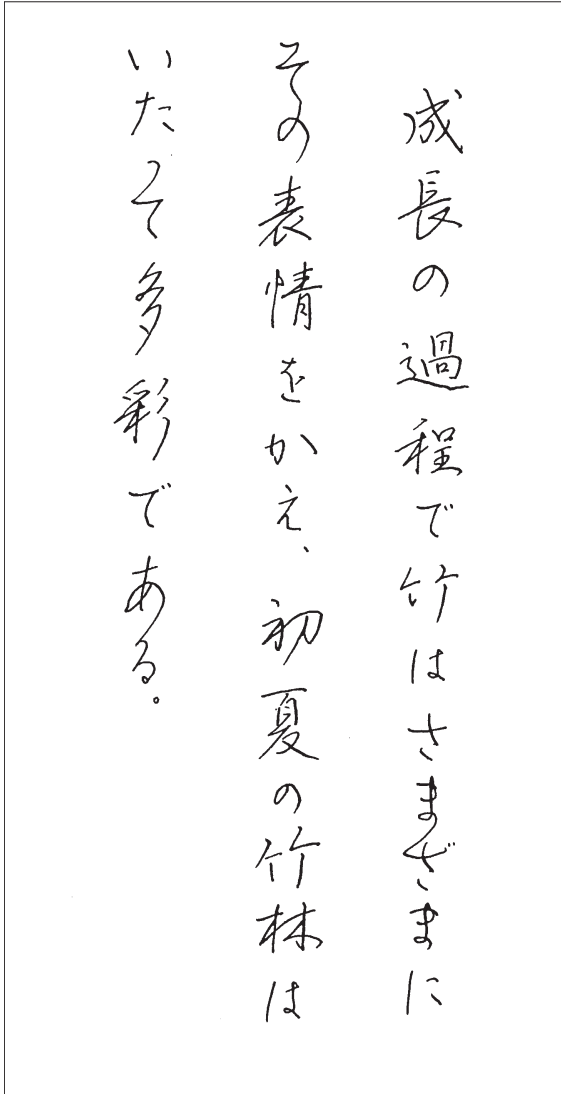 成長の過程で竹はさまざまに
その表情をかえ、初夏の竹林は
いたって多彩である。